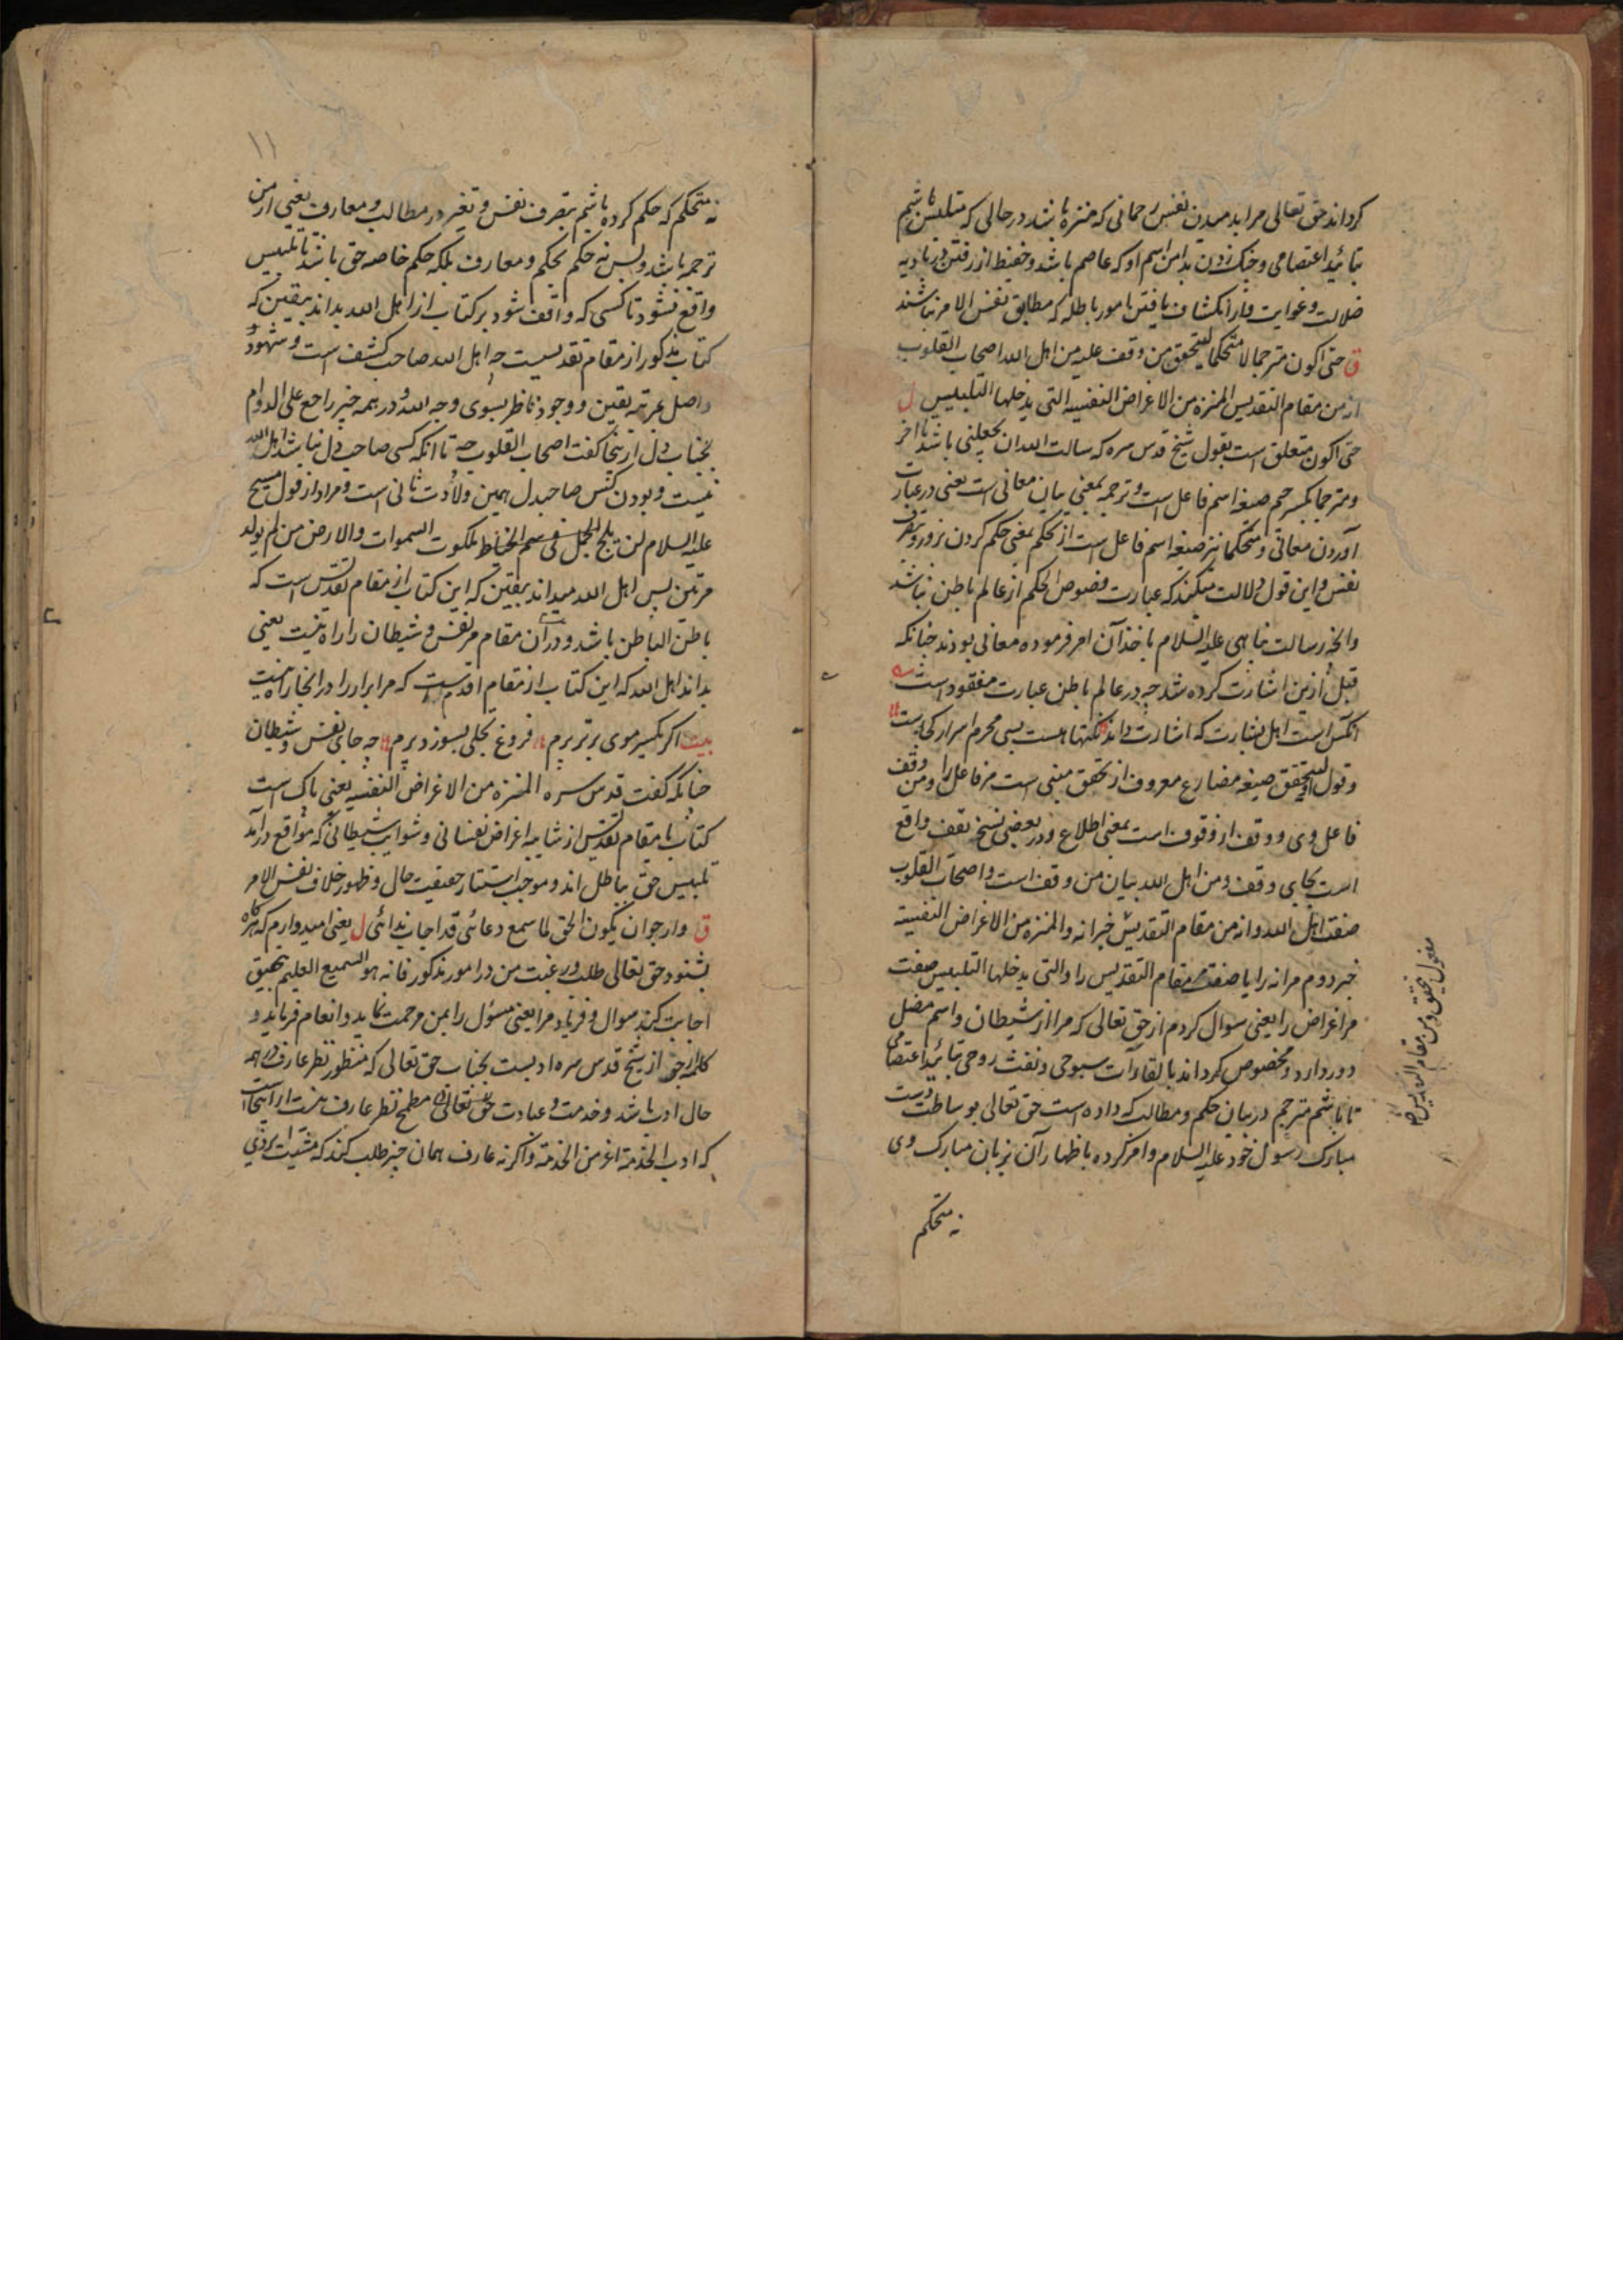 کرداند حق تعالی مرا بدمیدن نفس رحمانی که منزه باشد در حالی که متلبس باشم
بتائید اعتصامی و چنک زدن بدامن اسم او که عاصم باشد و حفیظ از رفتن در بادیه
ضلالت و غوایت و از انکشاف یافتن بامور باطله که مطابق نفس الامر نباشند
ق حتی اکون مترجما لا متحکما لیتحقق من وقف علیه من اهل الله اصحاب القلوب
انه من مقام التقدیس المنزه من الاغراض النفسیه التی یدخلها التلبیس ل
حتی اکون متعلق است بقول شیخ قدس سره که سالت الله ان یجعلنی باشد تا آخر
و مترجما بکسر جیم صیغه اسم فاعل است و ترجمه بمعنی بیان معانی است یعنی در عبارت
آوردن معانی و متحکما نیز صیغه اسم فاعل است از تحکم بمعنی حکم کردن بزور و بتصرف
نفس و این قول دلالت میکند که عبارت فصوص الحکم از عالم باطن نباشد
والحضرت رسالت پناهی علیه السلام باخذ آن امر فرموده معانی بودند چنانکه
قبل ازین اشارت کرده شد چه در عالم باطن عبارت مفقود است
انکس است اهل بشارت که اشارت داند نکتها هست بسی محرم اسرار کجاست
و قول او لیتحقق صیغه مضارع معروف از تحقق مبنی است مر فاعل را و من وقف
فاعل وی و وقف از وقوف است بمعنی اطلاع و در بعضی نسخ یقف واقع
است بجای وقف و من اهل الله بیان من وقف است و اصحاب القلوب
صفت اهل الله و انه من مقام التقدیس خبر انه و المنزه من الاغراض النفسیه
خبر دوم مر انه را یا صفت مقام التقدیس را و التی یدخلها التلبیس صفت
مر اغراض را یعنی سوال کردم از حق تعالی که مرا از شیطان و اسم مضل
دور دارد و مخصوص کرداند بالقاآت سبوحی و نفث روحی بتائید اعتصامی
تا باشم مترجم در بیان حکم و مطالب که داده است حق تعالی بوساطت دست
مبارک رسول خود علیه السلام و امر کرده باظهار آن بزبان مبارک وی
نه متحکم
مفعول یتحقق و من مقام التقدیس
۱۱
نه متحکم که حکم کرده باشم بتصرف نفس و تغیر در مطالب و معارف یعنی از من
ترجمه باشد و بس نه حکم بحکم و معارف بلکه حکم خاصه حق باشد تا تلبیس
واقع نشود تا کسی که واقف شود بر کتاب از اهل الله بداند بیقین که
کتاب مذکور از مقام تقدیست چه اهل الله صاحب کشف است و شهود
واصل بمرتبه یقین و وجود ناظر بسوی وجه الله و در همه چیز راجع علی الدوام
بجناب دل ازینجا کفت اصحاب القلوب چه تا انکه کسی صاحب دل نباشد اهل الله
نیست و بودن کس صاحبدل همین ولادت ثانی است و مراد از قول مسیح
علیه السلام لن یلج ملکوت السموات والارض من لم یولد
مرتین پس اهل الله میداند بیقین که این کتاب از مقام تقدس است که
باطن الباطن باشد و در آن مقام مر نفس و شیطان را راه نیست یعنی
بداند اهل الله که این کتاب از مقام اقدس است که مر ابرار را در انجا راه نیست
بیت اکر یکسر موی برتر پرم فروغ تجلی بسوزد پرم چه جای نفس و شیطان
چنانکه کفت قدس سره المنزه من الاغراض النفسیه یعنی پاک است
کتاب یا مقام تقدیس از شایبه اغراض نفسانی و شوایب شیطانی که مواقع درآمد
تلبیس حق بباطل اند و موجب استتار حقیقت حال و ظهور خلاف نفس الامر
ق و ارجو ان یکون الحق لما سمع دعائی قد اجاب ندائی ل یعنی امیدوارم که هرکاه
بشنود حق تعالی طلب و رغبت من در امور مذکور فانه هو السمیع العلیم بتحقیق
اجابت کند سوال و فریاد مرا یعنی مسؤل را بمن مرحمت نماید و انعام فرماید و
کلمه ارجو از شیخ قدس سره ادبست بجناب حق تعالی که منظور نظر عارف در همه
حال ادب باشد و خدمت و عبادت حق تعالی مطمح نظر عارف نیست از اینجاست
که ادب الخدمة اعز من الخدمة و اکرنه عارف همان چیز طلب کند که مشیت ایزدی